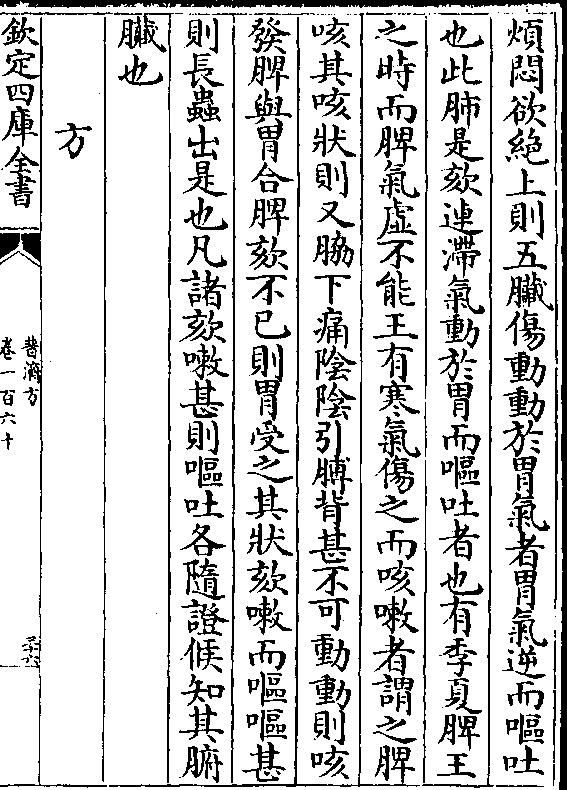 煩悶欲絶上則五臟傷動動於胃氣者胃氣逆而嘔吐
也此肺是欬連滯氣動於胃而嘔吐者也有季夏脾王
之時而脾氣虛不能王有寒氣傷之而咳嗽者謂之脾
咳其咳狀則又脇下痛陰陰引膊背甚不可動動則咳
發脾與胃合脾欬不已則胃受之其狀欬嗽而嘔嘔甚
則長蟲出是也凡諸欬嗽甚則嘔吐各隨證候知其腑
臟也
方
欽定四庫全書
普濟方
卷一百六十